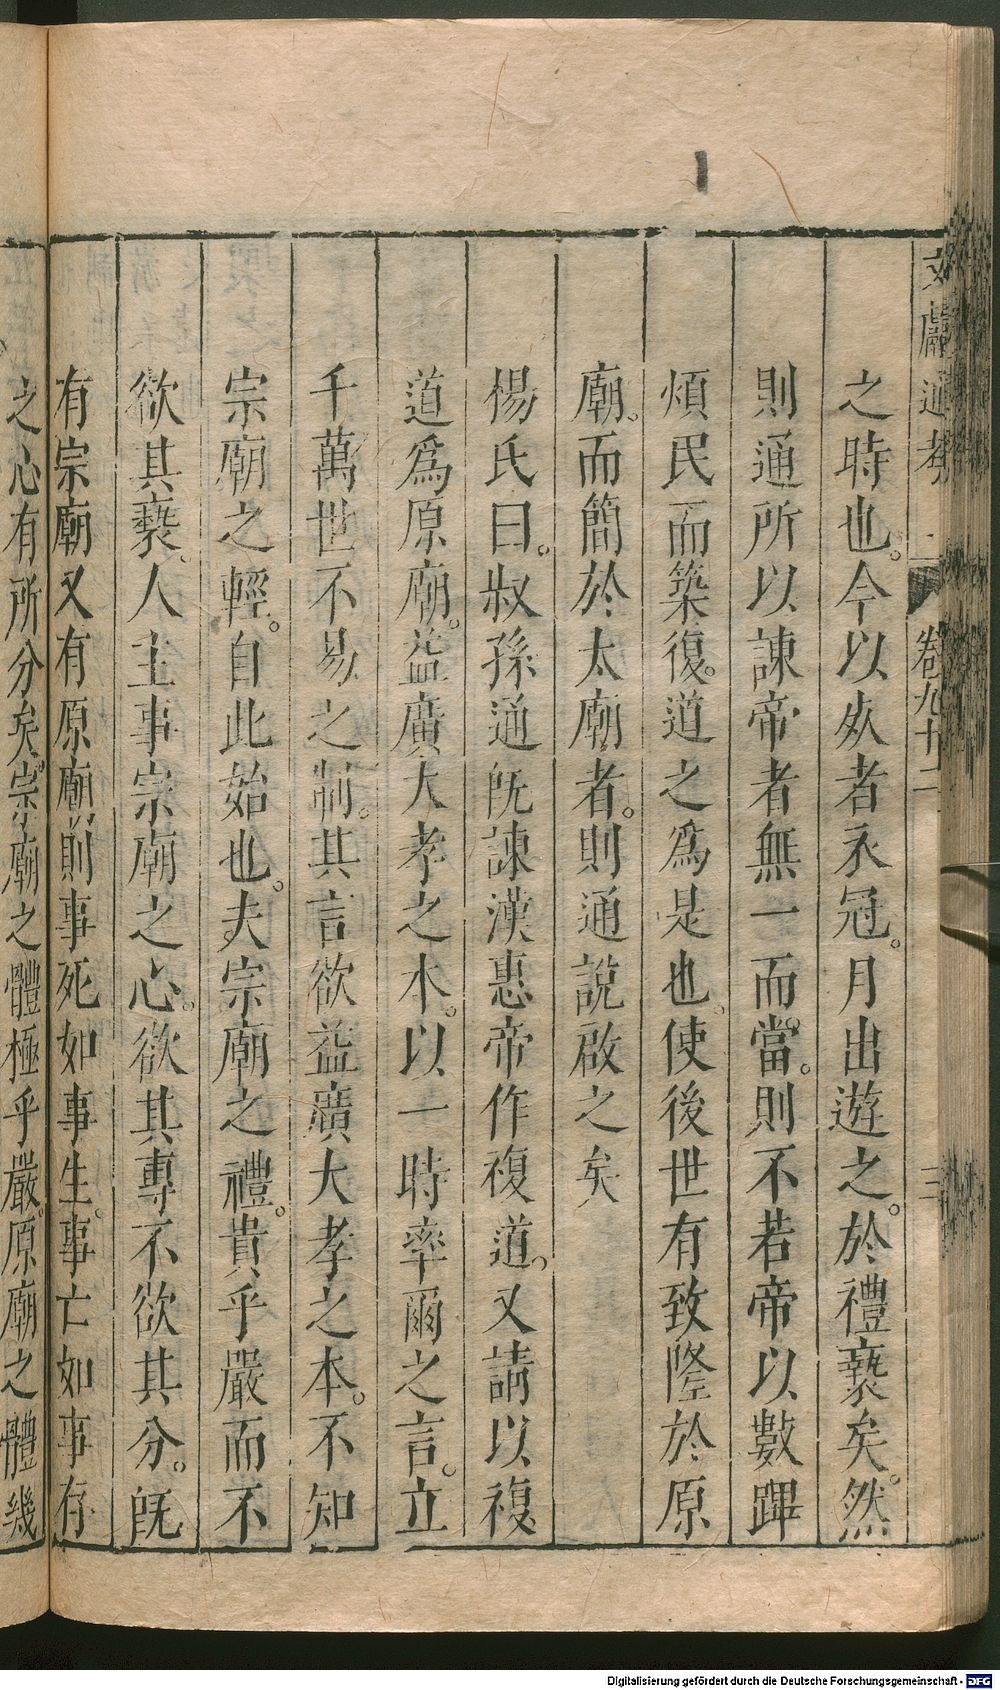 文獻通考
卷九十二
三
之時也。今以死者衣冠。月出遊之。於禮褻矣。然
則通所以諫帝者無一而當。則不若帝以數蹕
煩民而築復。道之爲是也。使後世有致隆於原
廟。而簡於太廟者。則通說啟之矣
楊氏曰。叔孫通旣諫漢惠帝作複道。又請以複
道爲原廟。益廣大孝之本。以一時率爾之言。立
千萬世不易之制。其言欲益廣大孝之本。不知
宗廟之輕。自此始也。夫宗廟之禮。貴乎嚴而不
欲其褻。人主事宗廟之心。欲其專不欲其分。旣
有宗廟又有原廟則事死如事生。事亡如事存
之心有所分矣。宗廟之體極乎嚴。原廟之體幾
Digitalisierung gefördert durch die Deutsche Forschungsgemeinschaft - DFG